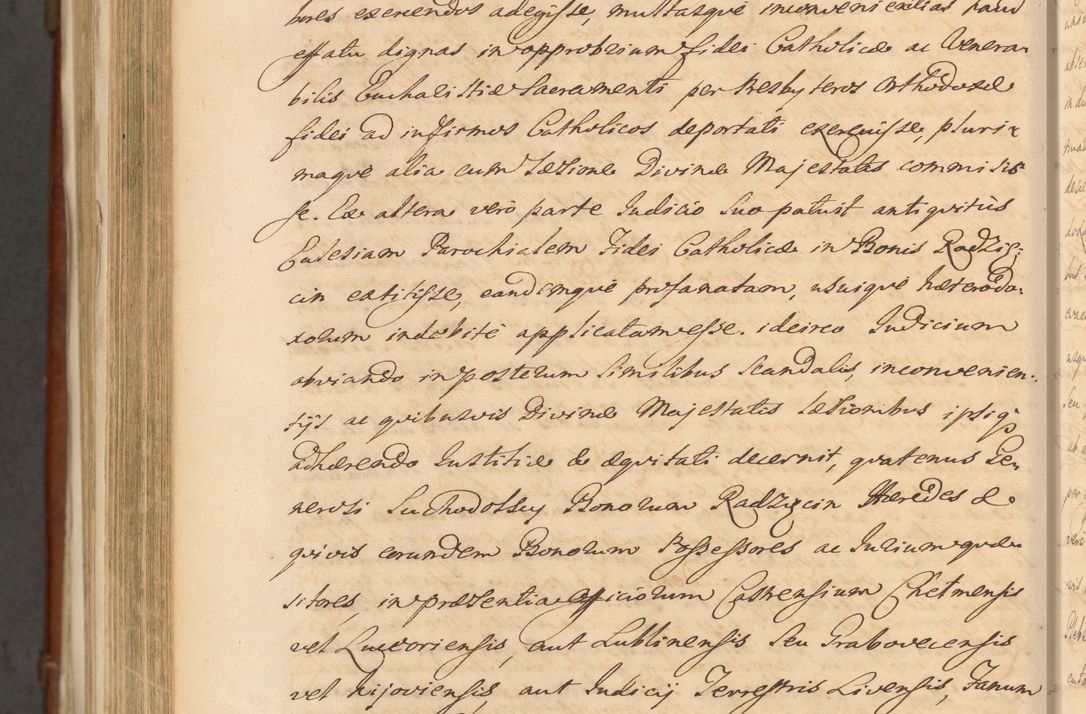 bores exercendos adegisse, multasque inconvenientias haud
effatu dignas in opprobrium fidei Catholicæ ac Venera-
bilis Eucharistiæ Sacramenti per Presbyteros Orthodoxæ
fidei ad infirmos Catholicos deportati exercuisse, pluri-
maque alia cum Læsione Divinæ Majestatis commisis-
se. Ex altera vero parte Judicio Suo patuit antiquitus
Ecclesiam Parochialem Fidei Catholicæ in Bonis Radzię-
cin extitisse, eandemque profanatam, usuique hæterodo-
xorum indebite applicatam esse. idcirco Judicium
obviando in posterum Similibus Scandalis, inconvenien-
tijs ac quibusvis Divinæ Majestatis Læsionibus ipsiq
adhærendo Justitiæ & æquitati decernit, quatenus Ge-
nerosi Suchodolscy Bonorum Radzięcin Hæredes &
quivis eorundem Bonorum Possessores ac Jurium quæ-
sitores, in præsentia Officiorum Castrensium Chełmensis
vel Luceoriensis, aut Lublinensis Seu Grabovecensis
vel Kijoviensis, aut Judicij Terrestris Livensis, Fanum